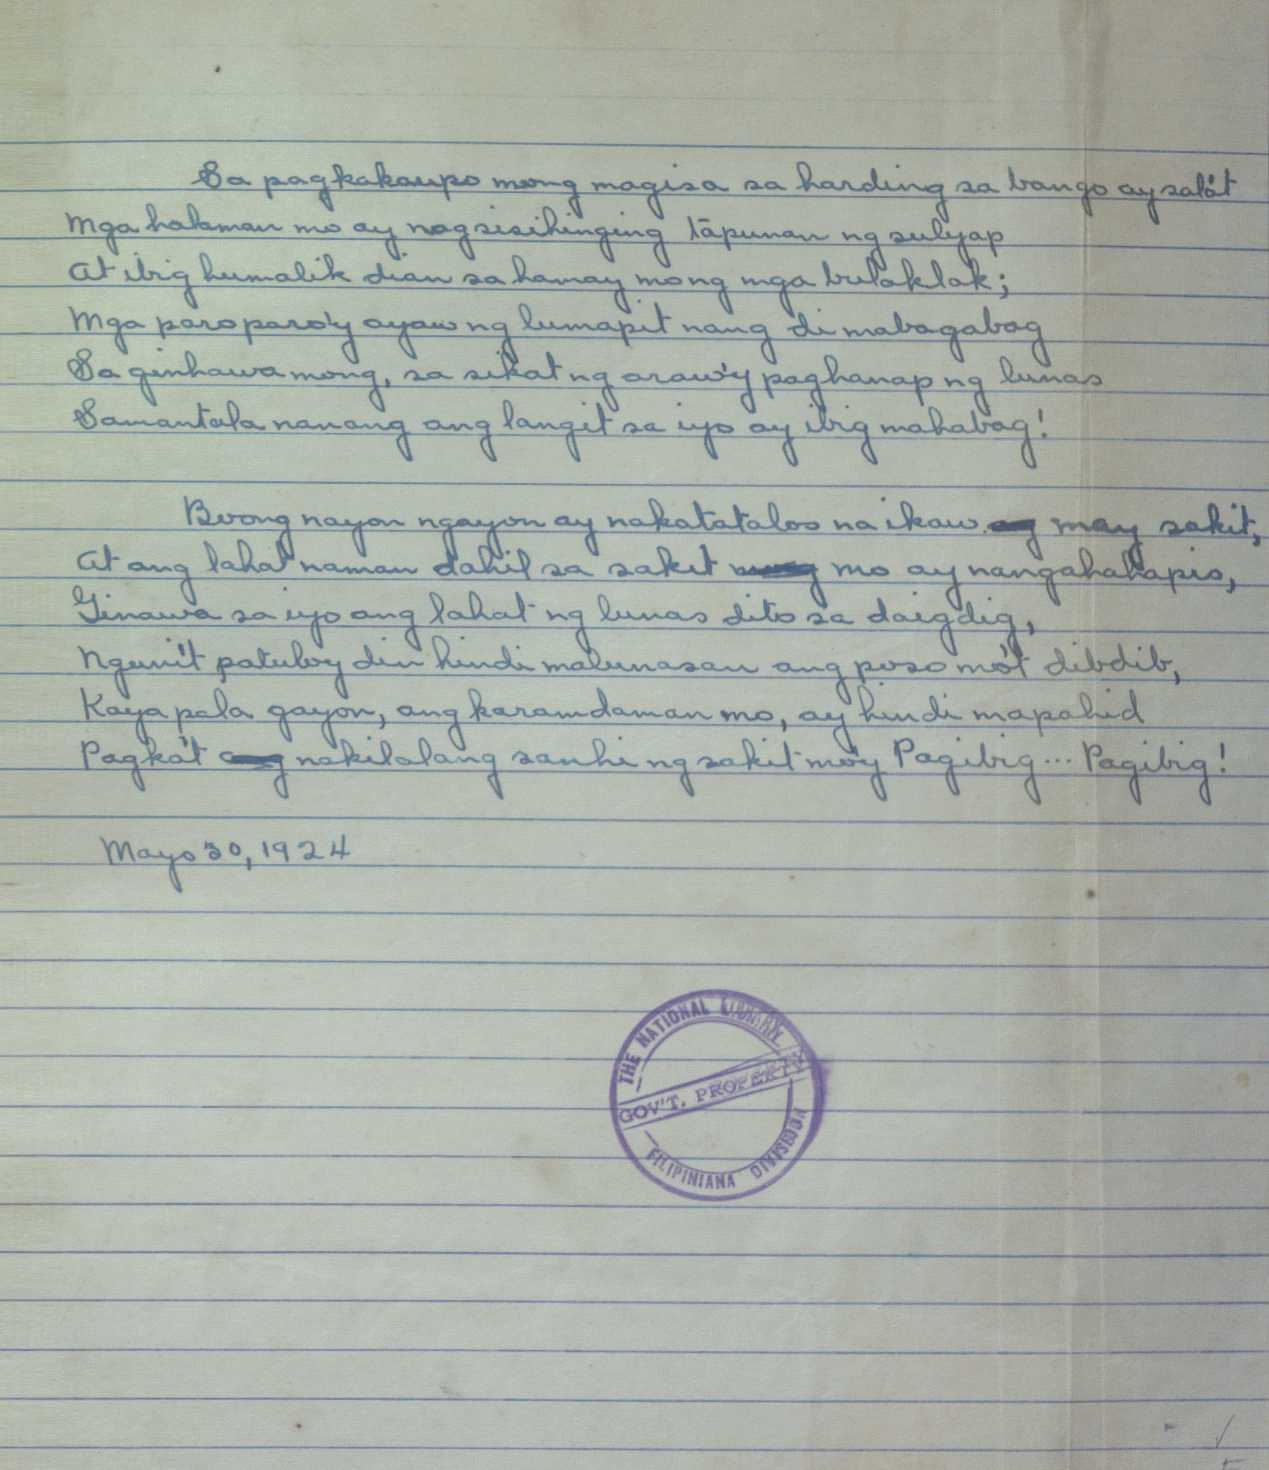 Sa pagkakaupo mong magisa sa harding sa bango ay salát
Mga halaman mo ay nagsisihinging tapunan ng sulyap
At ibig humalik dian sa kamay mong mga bulaklak;
Mga paroparo'y ayaw ng lumapit nang di mabagabag
Sa ginhawa mong, sa sikat ng araw'y paghanap ng lunas
Samantala nanang ang langit sa iyo ay ibig mahabag!
Boong nayon ngayon ay nakatataloo na ikaw may sakit,
At ang lahat naman dahil sa sakit mo ay nangahahapis,
Ginawa sa iyo ang lahat ng lunas dito sa daigdig,
Nguni't patuloy din hindi malunasan ang puso mo't dibdib,
Kaya pala gayon, ang karamdaman mo, ay hindi mapahid
Pagka't nakilalang sanhi ng sakit mo'y Pagibig... Pagibig!
Mayo 30, 1924
THE NATIONAL LIBRARY
GOV'T. PROPERTY
FILIPINIANA DIVISION